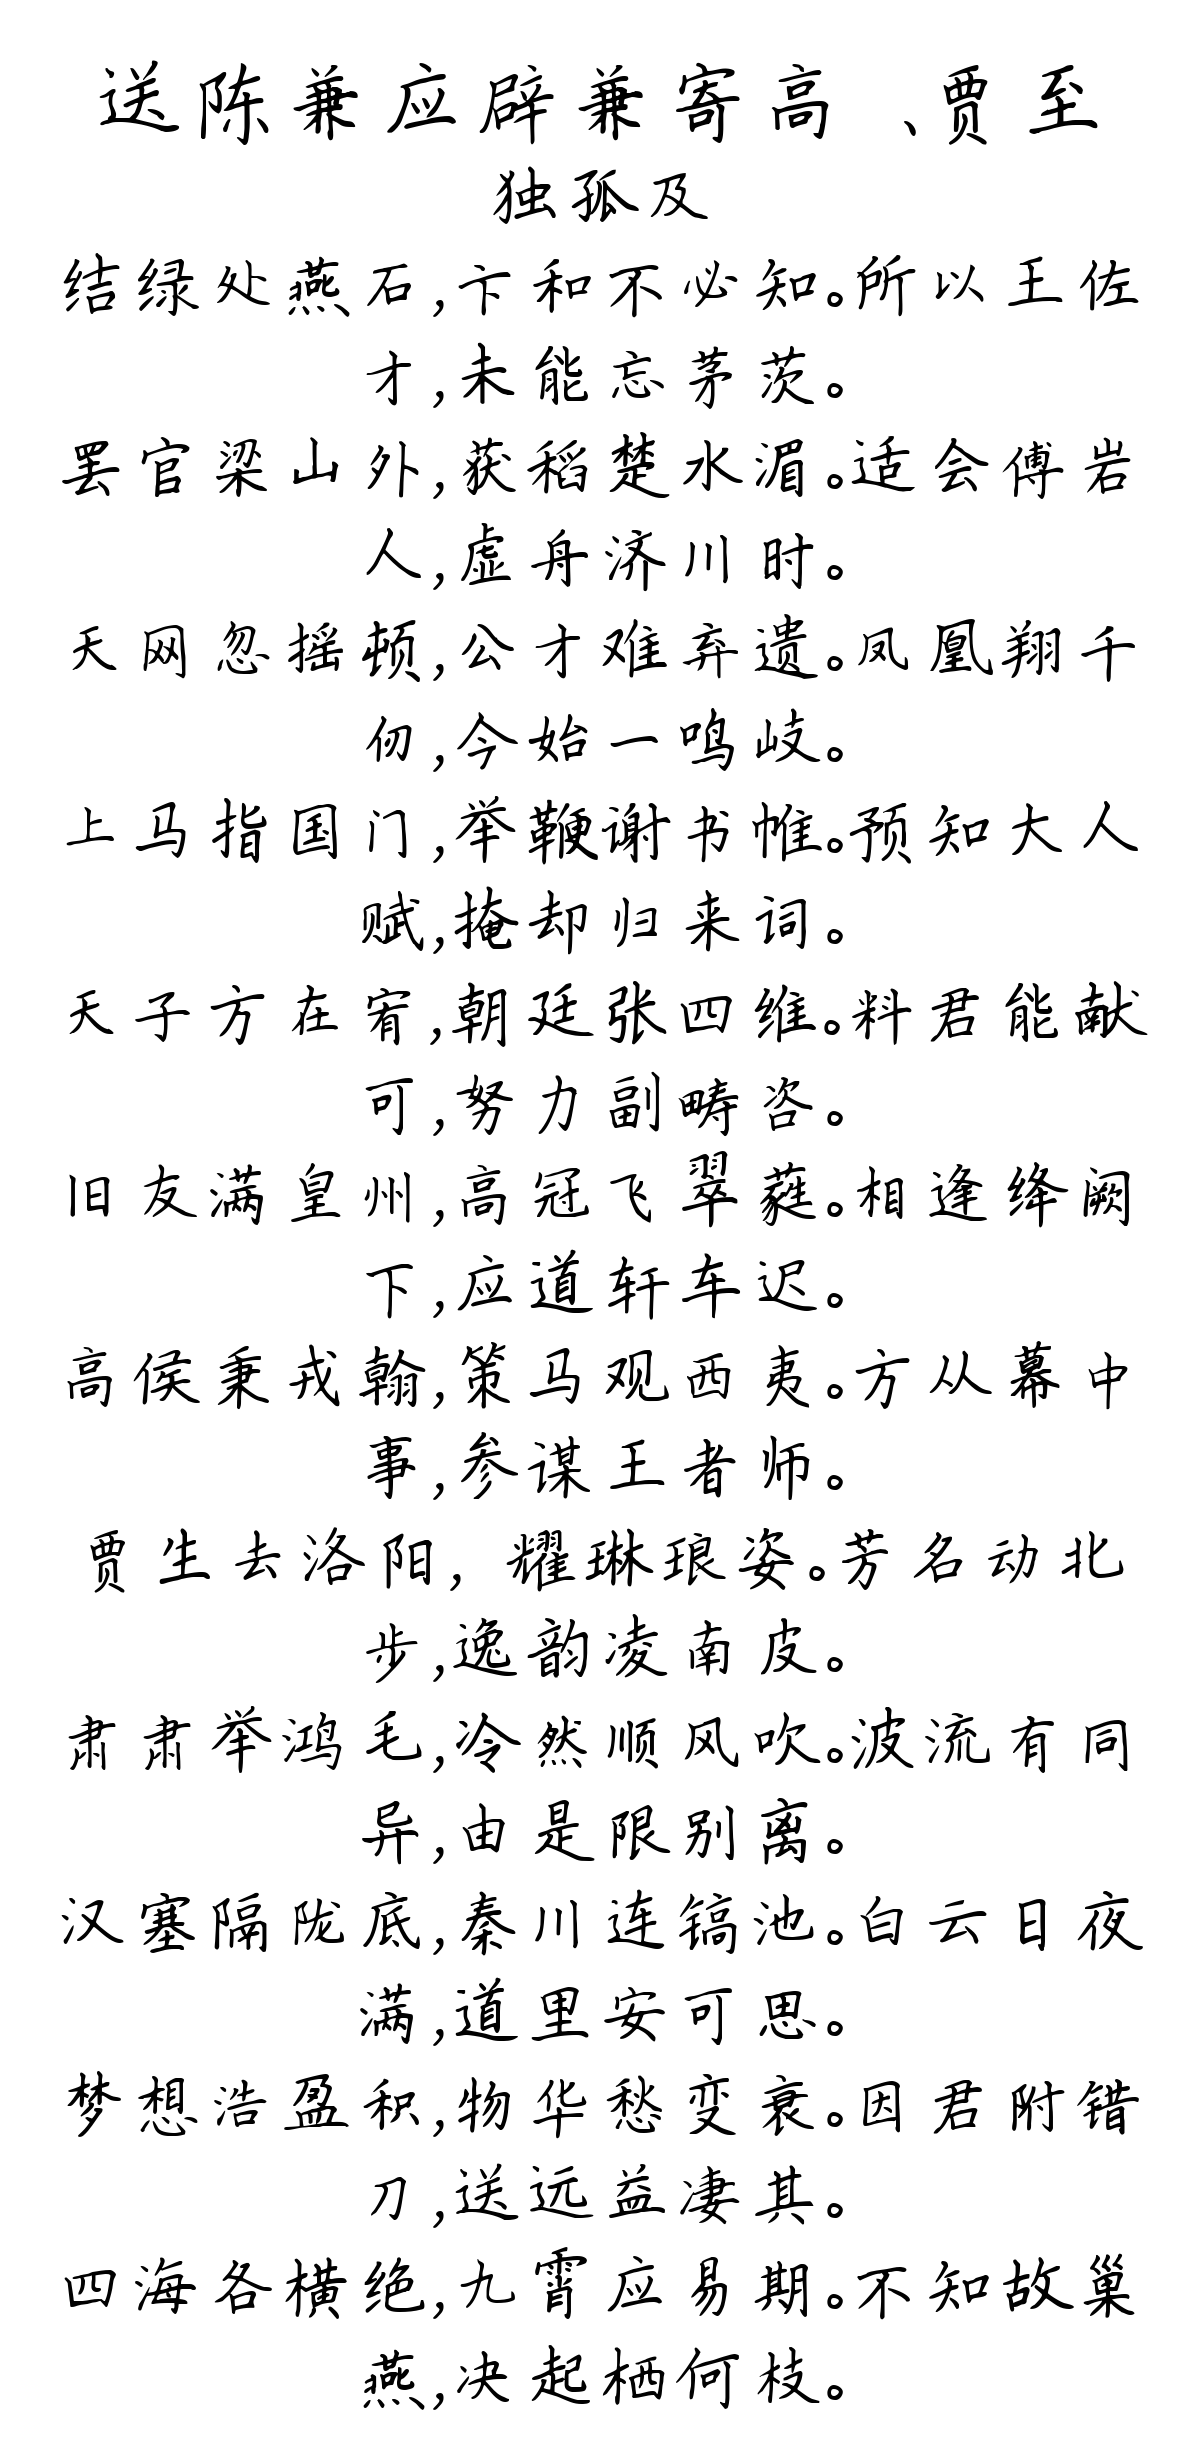 送陈兼应辟兼寄高 、贾至
独孤及
结绿处燕石,卞和不必知。所以王佐
才,未能忘茅茨。
罢官梁山外,获稻楚水湄。适会傅岩
人,虚舟济川时。
天网忽摇顿,公才难弃遗。凤凰翔千
仞,今始一鸣岐。
上马指国门,举鞭谢书帷。预知大人
赋,掩却归来词。
天子方在宥,朝廷张四维。料君能献
可,努力副畴咨。
旧友满皇州,高冠飞翠蕤。相逢绛阙
下,应道轩车迟。
高侯秉戎翰,策马观西夷。方从幕中
事,参谋王者师。
贾生去洛阳,耀琳琅姿。芳名动北
步,逸韵凌南皮。
肃肃举鸿毛,冷然顺风吹。波流有同
异,由是限别离。
汉塞隔陇底,秦川连镐池。白云日夜
满,道里安可思。
梦想浩盈积,物华愁变衰。因君附错
刀,送远益凄其。
四海各横绝,九霄应易期。不知故巢
燕,决起栖何枝。